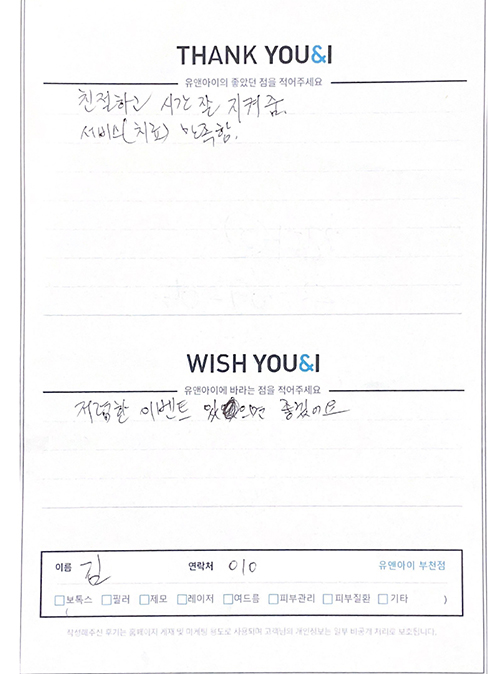 THANK YOU&I
유앤아이의 좋았던 점을 적어주세요
친절하고 시간 잘 지켜줌.
서비스(치료) 만족함.
WISH YOU&I
유앤아이에 바라는 점을 적어주세요
저렴한 이벤트 있으면 좋겠어요
이름 김 연락처 010 유앤아이 부천점
보톡스 필러 제모 레이저 여드름 피부관리 피부질환 기타 )
(
작성해주신 후기는 홈페이지 게재 및 마케팅 용도로 사용되며 고객님의 개인정보는 일부 비공개 처리로 보호됩니다.